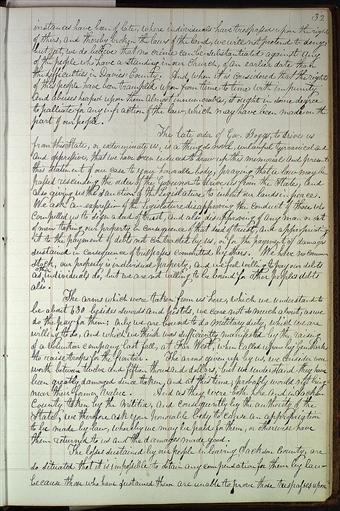 32
instances have been of late, where individuals have trespassed upon the rights
of others, and thereby broken the laws of the land, we will not pretend to deny,
but yet, we do believe that no crime can be substantiated against any
of the people who have a standing in our Church, of an earlier date than
the difficulties in Daviess County. And when it is considered that the rights
of this people have been trampled upon from time to time with impunity,
and abuses heaped upon them almost innumerable, it ought in some degree
to palliate for any infraction of the law, which may have been made on the
part of our people.
The late order of Gov. Boggs, to drive us
from this State, or exterminate us, is a thing so novel, unlawful, tyrannical and
and oppressive, that we have been induced to draw up this memorial and present
this statement of our case to your honorable body, praying that a law may be
passed rescinding the order of the Governor to drive us from the State, and
also giving us the sanction of the Legislature to inhabit our lands in peace.
We ask an expression of the Legislature disapproving the conduct of those who
compelled us to sign a deed of trust, and also disapproving of any man or set
of men taking our property in consequence of that deed of trust, and appropriating
it to the payment of debts not contracted by us, or for the payment of damages
sustained in consequence of trespasses committed by others. We have no common
stock, our property is individual property, and we feel willing to pay our debts
as individuals do, but we are not willing to be bound for other peoples debts
also.
The arms which were taken from us here, which we understand to
be about 630 besides swords and pistols, we care not so much about, as we
do the pay for them; only we are bound to do military duty, which we are
willing to do, and which we think was sufficiently manifested by the raising
of a volunteer company last fall, at Far West, when called upon by Gen. Parks
to raise troops for the frontier. The arms given up by us, we consider were
worth between twelve and fifteen thousand dollars, but we understand they have
been greatly damaged since taken, and at this time, probably would not bring
near their former value. And as they were both here and in Jackson
County taken by the Militia, and consequently by the authority of the
State, we therefore ask your honorable body to cause an appropriation
to be made by law, whereby we may be paid for them, or otherwise have
them returned to us and the damages made good.
The losses sustained by our people in leaving Jackson County, are
so situated that it is impossible to obtain any compensation for them by law
because those who have sustained them are unable to prove those trespasses upon